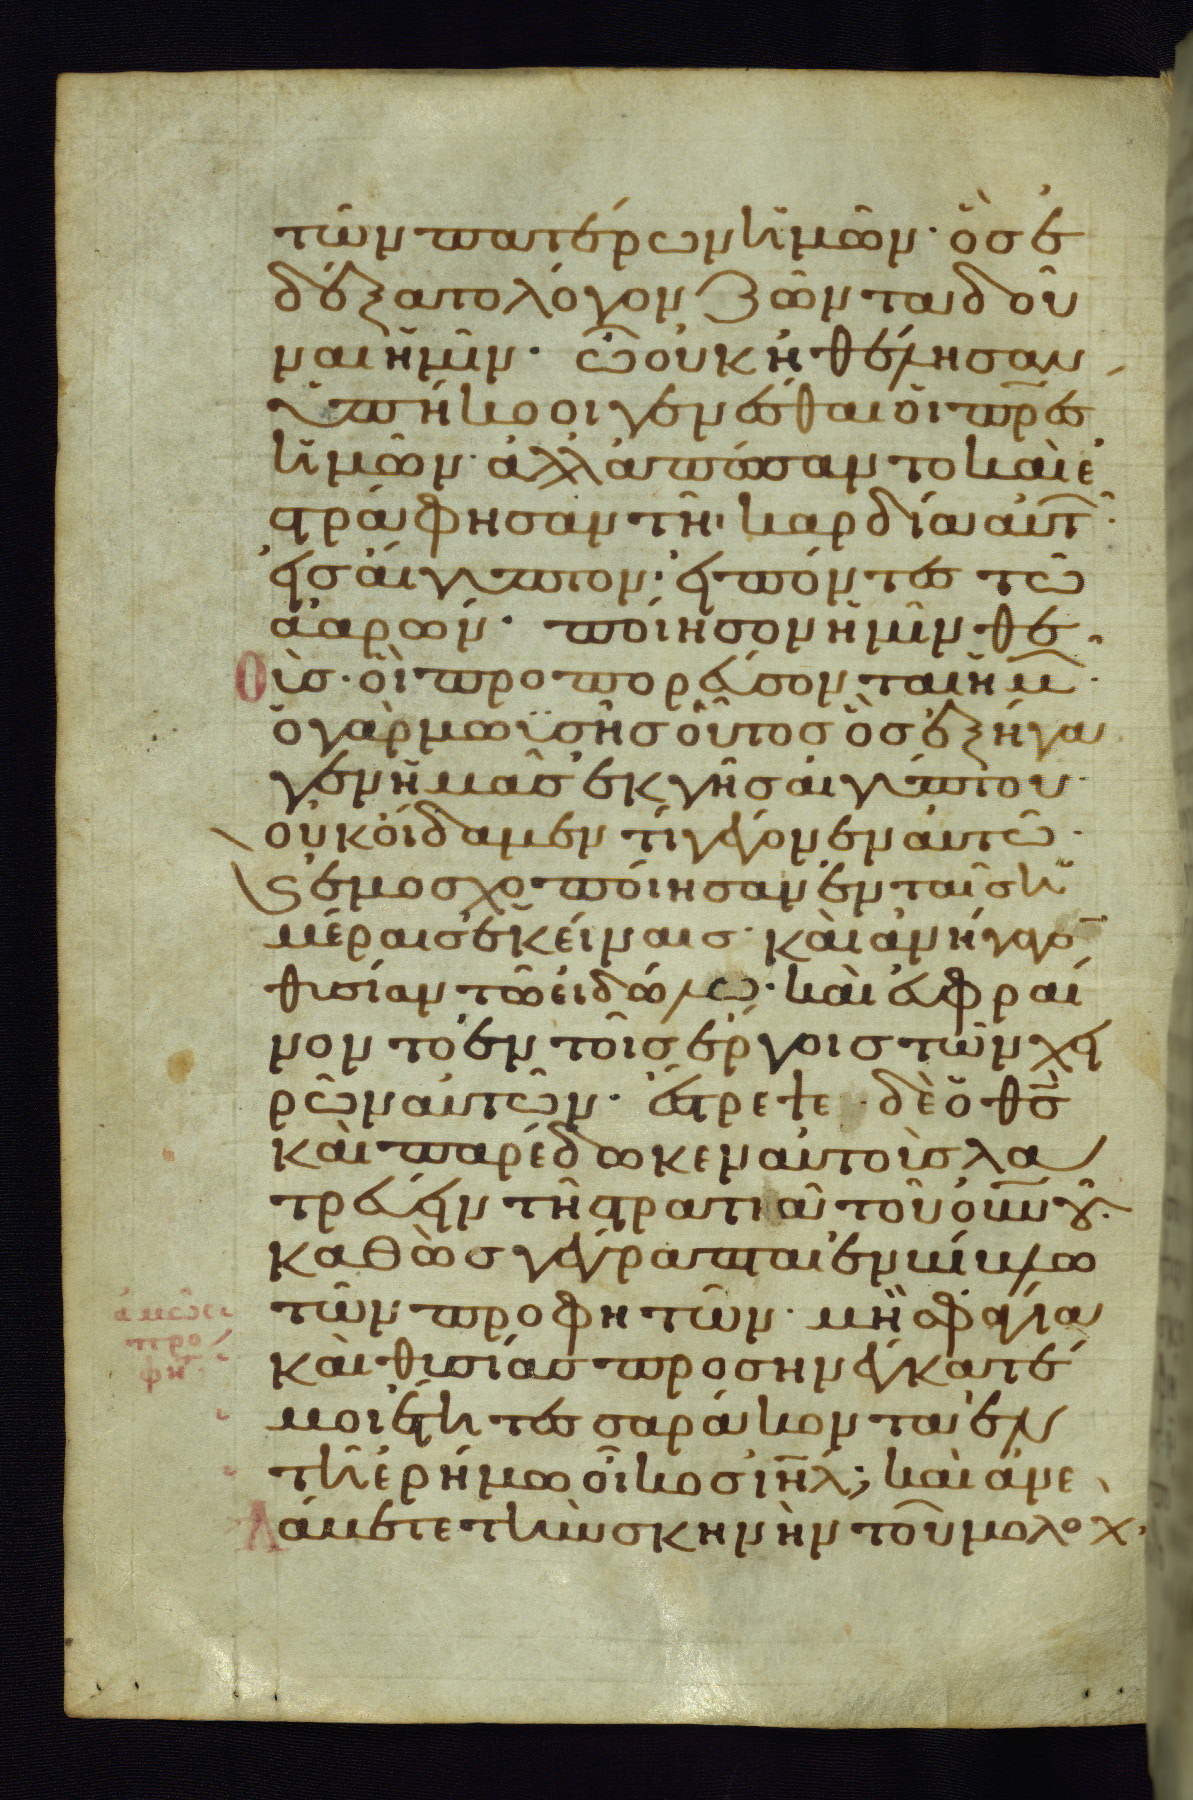 τῶν πατέρων ἡμῶν· ὃσ ἐ
δέξατο λόγον ζῶντα δοῦ
ναι ἡμῖν· ὧ οὐκ ἠθέλησαν
ὑπήκοοι γενέσθαι οἱ πρ̅ες
ἡμῶν· ἀλλ ἀπώσαντο καὶ ἐ
στράφησαν τῆ καρδία αὐτ͂·
εἰσ αἴγυπτον· εἰπόντες τῶ
ἀαρών· ποίησον ἡμῖν θε
οὺσ· οἳ προπορεύσονται ἡμ͂·
ὁ γὰρ μωϋσῆσ οὗτοσ ὃσ ἐξήγα
γεν ἡμᾶσ ἐκ γῆσ αἰγύπτου·
οὐκ οἴδαμεν τί γέγονεν αὐτῶ·
ϛ ἐμοσχοποίησαν ἐν ταῖσ ἡ
μέραισ ἐκείναισ· καὶ ἀνήγαγο̅
θυσίαν τῶ εἰδώλω· καὶ εὐφραί
νοντο ἐν τοῖσ ἔργοισ τῶν χει
ρῶν αὐτῶν· ἔστρεψε δὲ ὁ θ̅σ
καὶ παρέδωκεν αὐτοὺσ λα
τρεύειν τῆ στρατιᾶ τοῦ ου̅νου·
καθὼσ γέγραπται ἐν βίβλω
τῶν προφητῶν· μὴ σφάγια
καὶ θυσίασ προσηνέγκατέ
μοι ἔτη τεσσαράκοντα ἐν
τῆ ἐρήμω οἶκοσ ιη̅λ; καὶ ἀνε
λάβετε τὴν σκηνὴν τοῦ μολὸχ·
ἀμὼς
προ
φη